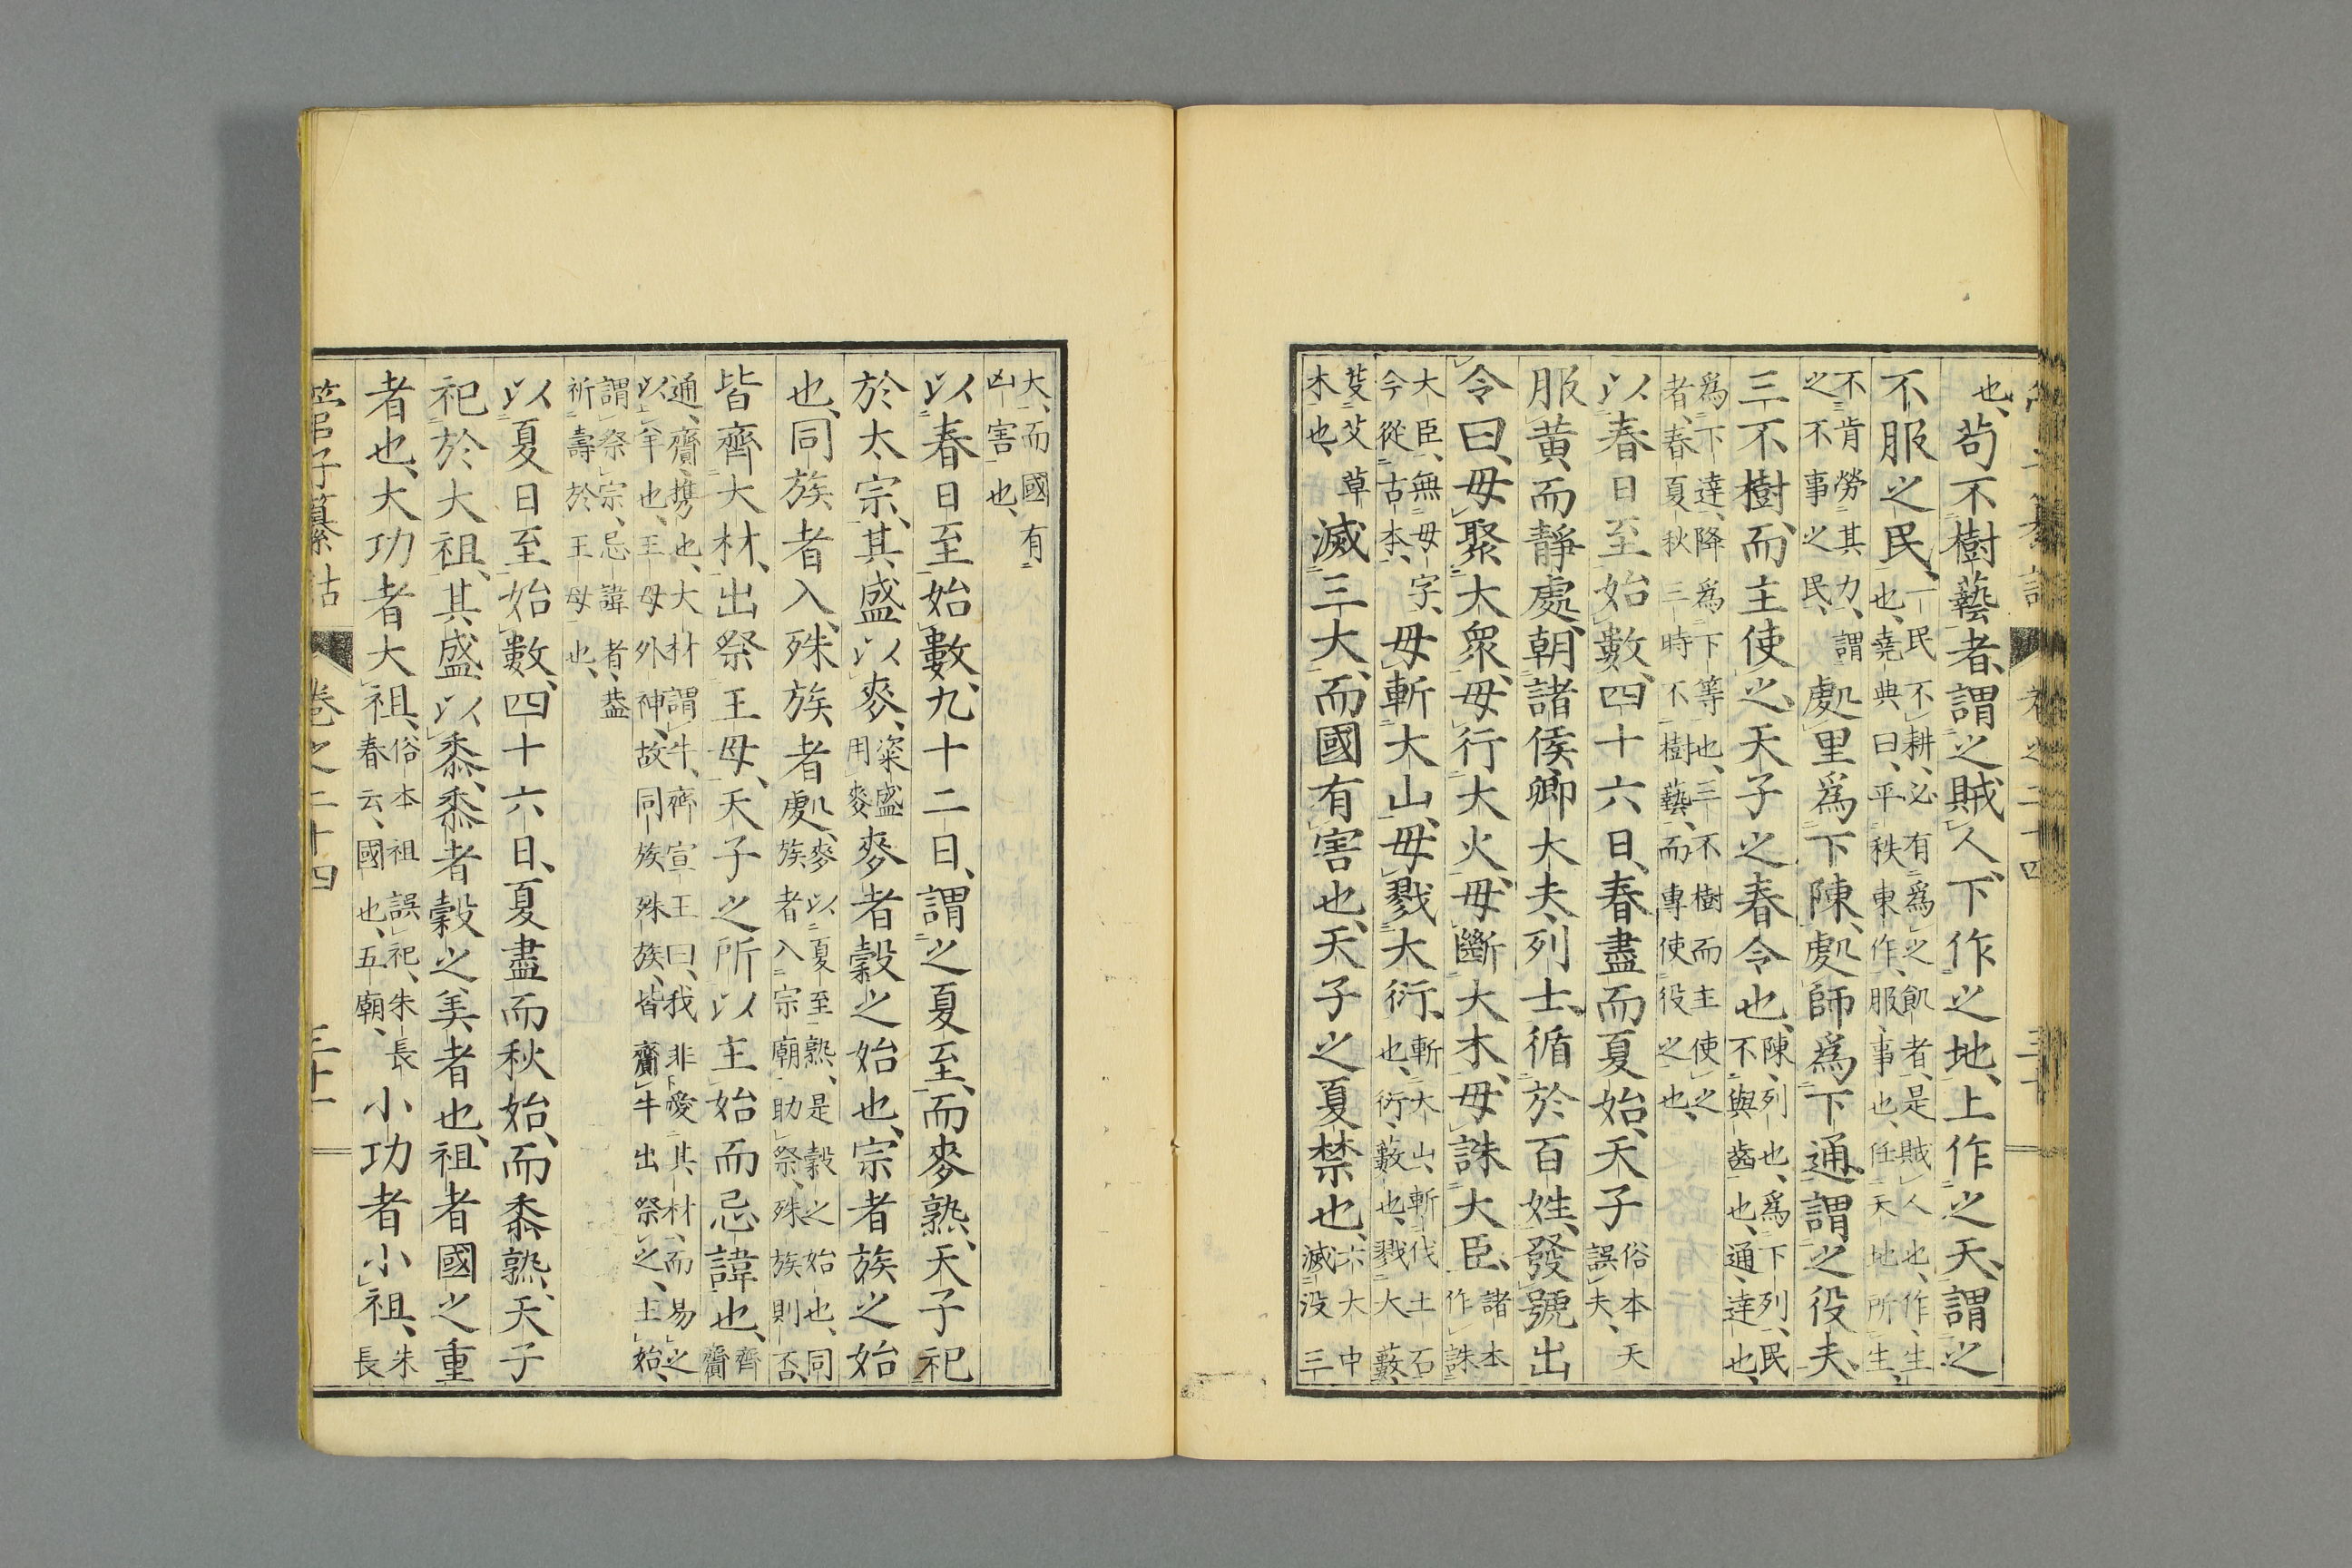 也、苟不樹藝者、謂之賊人、下作之地、上作之天、謂之
不服之民、一民不耕、必有爲之飢者、是賊人也、作、生
也、堯典曰、平秩東作、服、事也、任天地所生、
不肯勞其力、謂
之不事之民、處里爲下陳、處師爲下通、謂之役夫、
三不樹、而主使之、天子之春令也、陳、列也、爲下列、民
不與齒也、通、達也、
爲下達、降爲下等也、三不樹而主使之
者、春夏秋三時不樹藝、而專使役之也、
以春日至始數、四十六日、春盡而夏始、天子俗本天
誤夫、
服黄而靜處、朝諸侯卿大夫列士、循於百姓、發號出
令曰、毋聚大衆、毋行大火、毋斷大木、毋誅大臣、諸本
作誅
大臣、無毋字、
今從古本、毋斬大山、毋戮大衍、斬大山、斬伐土石
也、衍、藪也、戮大藪、
芟艾草
木也、滅三大、而國有害也、天子之夏禁也、六大中
滅没三
大、而國有
凶害也、
以春日至始數、九十二日、謂之夏至、而麥熟、天子祀
於太宗、其盛以麥、粢盛
用麥麥者穀之始也、宗者族之始
也、同族者入、殊族者處、麥以夏至熟、是穀之始也、同
族者入宗廟助祭、殊族則否、
皆齊大材、出祭王母、天子之所以主始而忌諱也、齊
齎
通、齎、携也、大材謂牛、齊宣王曰、我非愛其材、而易之
以羊也、王母外神、故同族殊族、皆齎牛出祭之、主始、
謂祭宗、忌諱者、葢
祈壽於王母也、
以夏日至始數、四十六日、夏盡而秋始、而黍熟、天子
祀於大祖、其盛以黍、黍者穀之美者也、祖者國之重
者也、大功者大祖、俗本祖誤祀、朱長
春云、國也、五廟、小功者小祖、朱
長
管子纂詁 卷之二十四 三十一